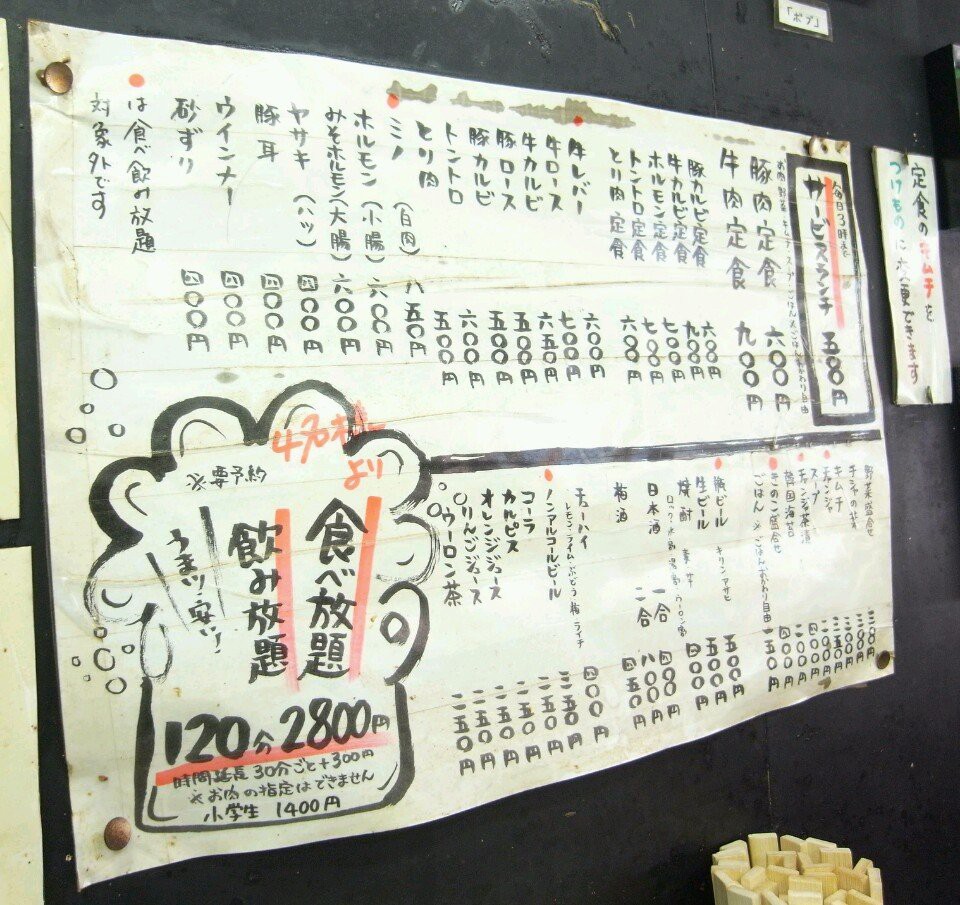 「ポプ」
定食のキムチを
つけものに変更できます
毎日3時まで
サービスランチ 五〇〇円
豚肉定食 六〇〇円
牛肉定食 九〇〇円
豚カルビ定食 六〇〇円
牛カルビ定食 九〇〇円
ホルモン定食 七〇〇円
トントロ定食 六〇〇円
とり肉定食
牛レバー 六〇〇円
牛ロース 七〇〇円
牛カルビ 六五〇円
豚ロース 五〇〇円
豚カルビ 五〇〇円
トントロ 六〇〇円
とり肉 五〇〇円
ミノ (白肉) 八五〇円
ホルモン (小腸) 六〇〇円
みそホルモン (大腸) 六〇〇円
ヤサキ (ハツ) 四〇〇円
豚耳 四〇〇円
ウインナー 四〇〇円
砂ずり 四〇〇円
は食べ飲み放題
対象外です
野菜盛合せ 三〇〇円
チシャの葉 二五〇円
キムチ 三〇〇円
チャンジャ 三五〇円
スープ 二〇〇円
チャンジャ茶漬
韓国海苔
きのこ盛合せ 四〇〇円
ごはん ※ごはんおかわり自由 一五〇円
瓶ビール キリン アサヒ 五〇〇円
生ビール 五〇〇円
焼酎 麦 芋 四〇〇円
日本酒 一合 四五〇円
二合 八〇〇円
梅酒 四五〇円
チューハイ 四〇〇円
レモン・ライム・ぶどう・梅・ライチ
ノンアルコールビール 三五〇円
コーラ 二五〇円
カルピス 二五〇円
オレンジジュース 二五〇円
りんごジュース 二五〇円
ウーロン茶 二五〇円
4名様より
※要予約
食べ放題
飲み放題
うまい!安い!
120分 2800円
時間延長 30分ごと+300円
※お肉の指定はできません
小学生 1400円